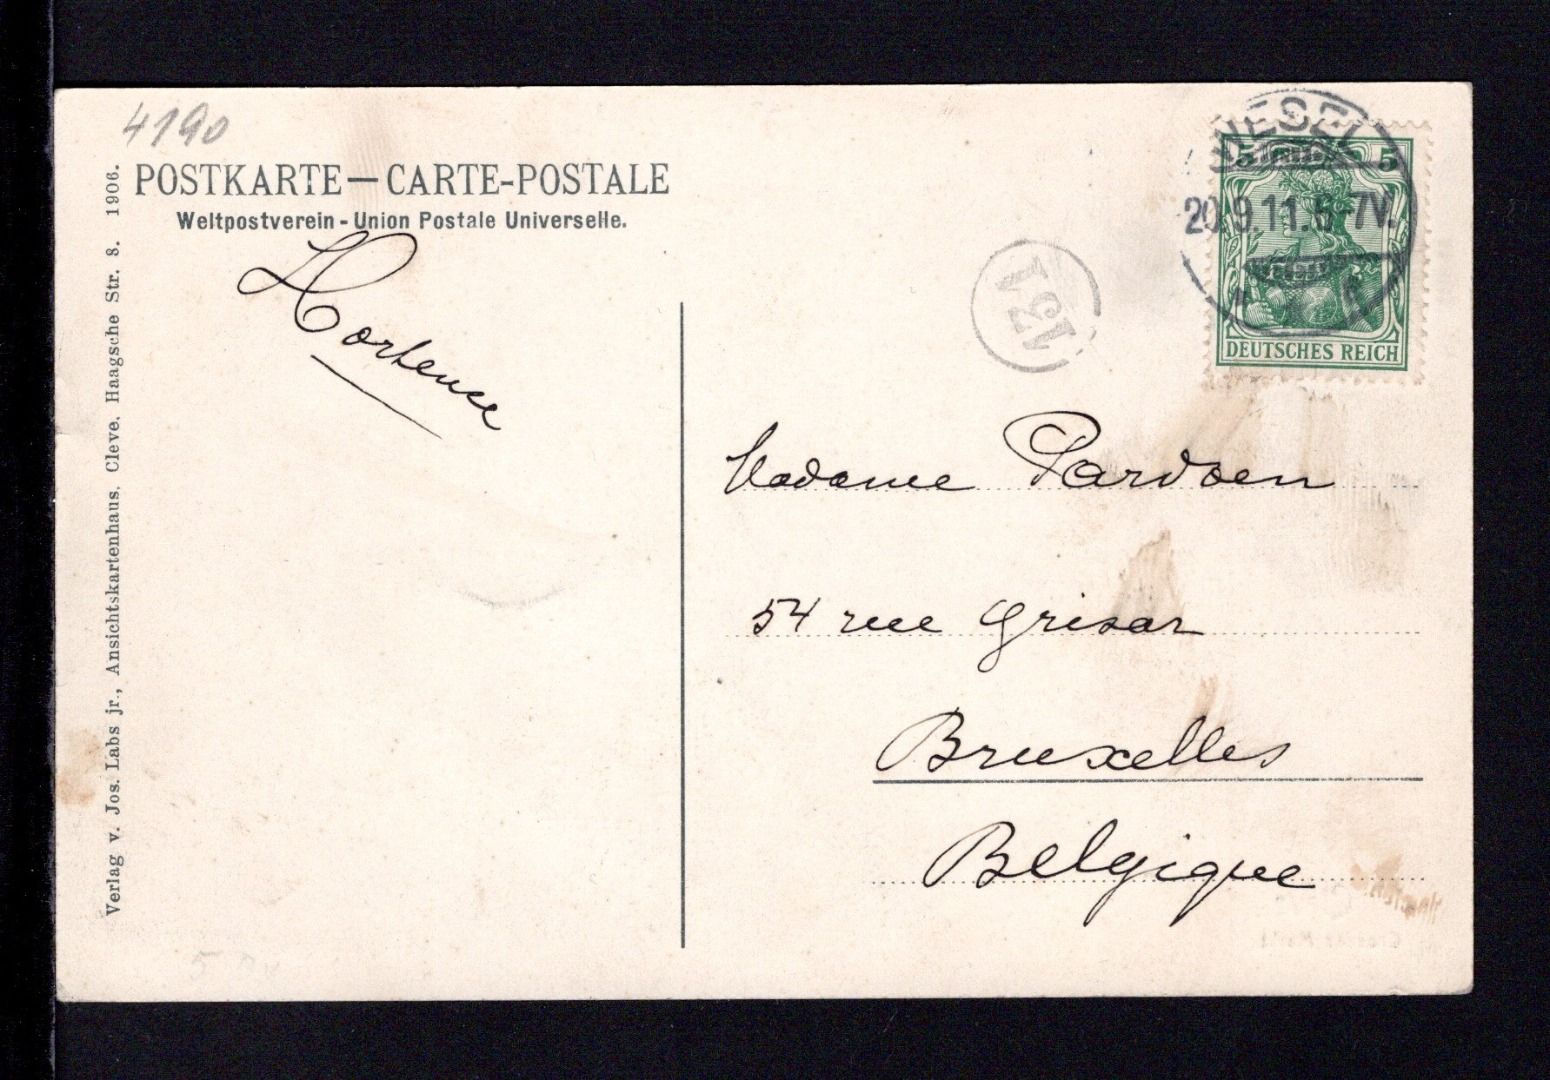 4190
POSTKARTE — CARTE-POSTALE
Weltpostverein - Union Postale Universelle.
Hortense
Verlag v. Jos. Labs jr., Ansichtskartenhaus, Cleve, Haagsche Str. 8. 1906.
WESEL
20.9.11.6-7N.
5 5
DEUTSCHES REICH
Madame Pardoen
54 rue Grisar
Bruxelles
Belgique